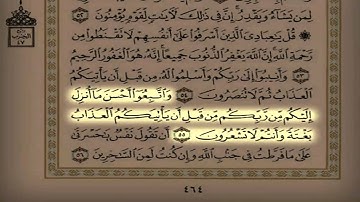 لِمَن يَشَآءُ وَيَقْدِرُ إِنَّ فِى ذَٰلِكَ لَـَٔايَٰتٍ لِّقَوْمٍ يُؤْمِنُونَ ٥٢
۞ قُلْ يَٰعِبَادِىَ ٱلَّذِينَ أَسْرَفُوا۟ عَلَىٰٓ أَنفُسِهِمْ لَا تَقْنَطُوا۟ مِن
رَّحْمَةِ ٱللَّهِ إِنَّ ٱللَّهَ يَغْفِرُ ٱلذُّنُوبَ جَمِيعًا إِنَّهُۥ هُوَ ٱلْغَفُورُ ٱلرَّحِيمُ
٥٣ وَأَنِيبُوٓا۟ إِلَىٰ رَبِّكُمْ وَأَسْلِمُوا۟ لَهُۥ مِن قَبْلِ أَن يَأْتِيَكُمُ
ٱلْعَذَابُ ثُمَّ لَا تُنصَرُونَ ٥٤ وَٱتَّبِعُوٓا۟ أَحْسَنَ مَآ أُنزِلَ
إِلَيْكُم مِّن رَّبِّكُم مِّن قَبْلِ أَن يَأْتِيَكُمُ ٱلْعَذَابُ
بَغْتَةً وَأَنتُمْ لَا تَشْعُرُونَ ٥٥ أَن تَقُولَ نَفْسٌ يَٰحَسْرَتَىٰ
عَلَىٰ مَا فَرَّطتُ فِى جَنۢبِ ٱللَّهِ وَإِن كُنتُ لَمِنَ ٱلسَّٰخِرِينَ ٥٦
٤٦٤
٤٧